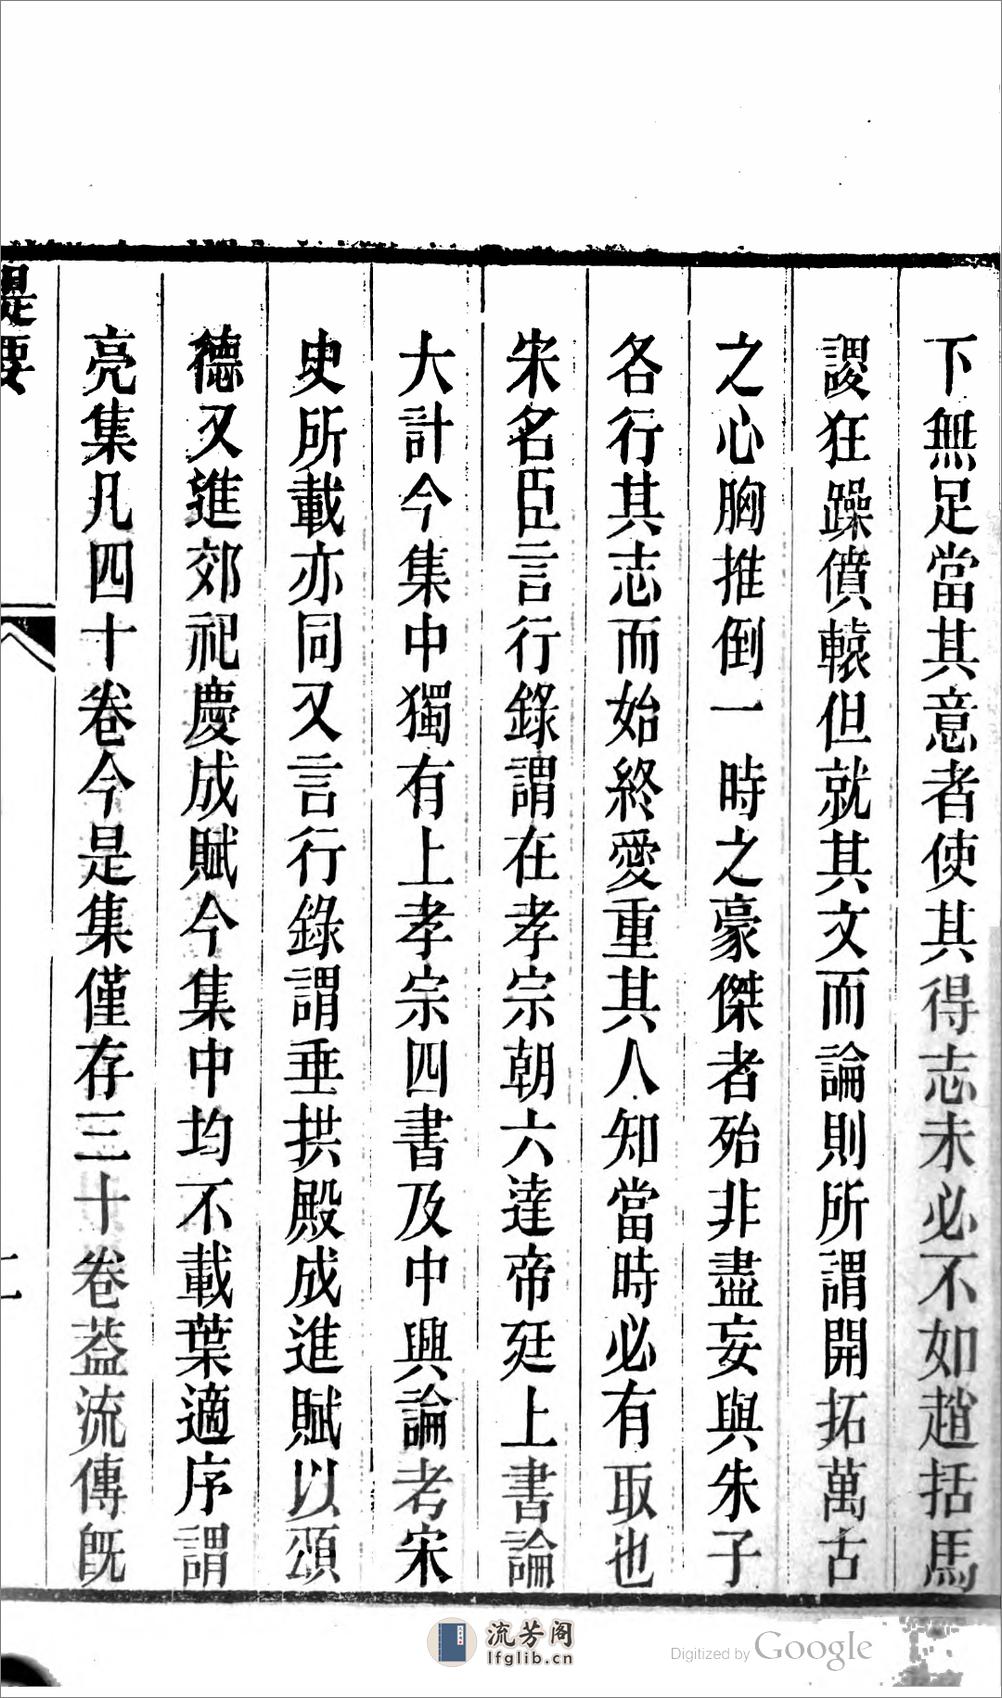 下無足當其意者使其得志未必不如趙括馬
謖狂躁僨轅但就其文而論則所謂開拓萬古
之心胸推倒一時之豪傑者殆非盡妄與朱子
各行其志而始終愛重其人知當時必有取也
宋名臣言行錄謂在孝宗朝六達帝廷上書論
大計今集中獨有上孝宗四書及中興論考宋
史所載亦同又言行錄謂垂拱殿成進賦以頌
德又進郊祀慶成賦今集中均不載葉適序謂
亮集凡四十卷今是集僅存三十卷葢流傳旣
提要
流芳阁
lfglib.cn
Digitized by Google